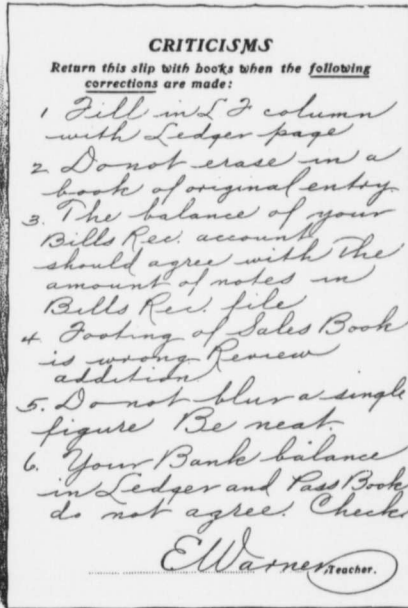 CRITICISMS
Return this slip with books when the following
corrections are made:
1 Fill in L F column
with Ledger page
2. Do not erase in a
book of original entry.
3. The balance of your
Bills Rec. account
should agree with the
amount of notes in
Bills Rec. file
4. Footing of Sales Book
is wrong. Review
addition
5. Do not blur a single
figure Be neat.
6. Your Bank balance
in Ledger and Pass Book
do not agree. Check.
E Warner, Teacher.